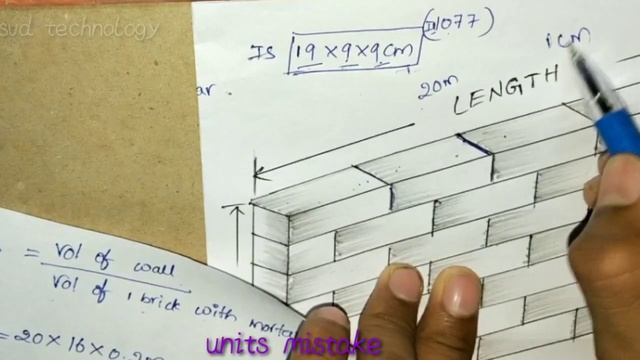 sud technology
IS 19 × 9 × 9 cm (IS 1077)
1 cm
20m
LENGTH
ar.
= Vol of wall
Vol of 1 brick with morta
= 20 × 16 × 0.2
units mistake